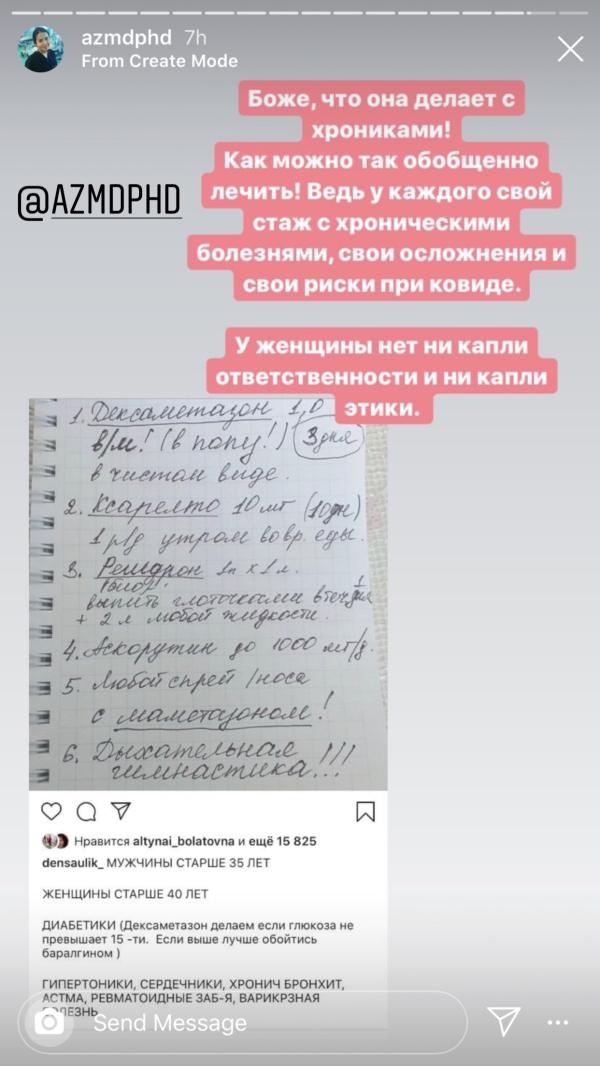 azmdphd 7h
From Create Mode
Боже, что она делает с
хрониками!
Как можно так обобщенно
лечить! Ведь у каждого свой
стаж с хроническими
болезнями, свои осложнения и
свои риски при ковиде.
@AZMDPHD
У женщины нет ни капли
ответственности и ни капли
этики.
1. Дексаметазон 1,0
в/м! (в попу!) 3 дня
в чистом виде.
2. Ксарелто 10 мг (10дн)
1 р/д утром во вр. еды.
3. Регидрон 1п х 1 л.
выпить глоточками в теч 1 дня
+ 2 л любой жидкости.
4. Аскорутин до 1000 мг/д.
5. Любой спрей /носа
с маметазоном!
6. Дыхательная
гимнастика!!!
Нравится altynai_bolatovna и ещё 15 825
densaulik_ МУЖЧИНЫ СТАРШЕ 35 ЛЕТ
ЖЕНЩИНЫ СТАРШЕ 40 ЛЕТ
ДИАБЕТИКИ (Дексаметазон делаем если глюкоза не
превышает 15 -ти. Если выше лучше обойтись
баралгином )
ГИПЕРТОНИКИ, СЕРДЕЧНИКИ, ХРОНИЧ БРОНХИТ,
АСТМА, РЕВМАТОИДНЫЕ ЗАБ-Я, ВАРИКРЗНАЯ
БОЛЕЗНЬ
Send Message